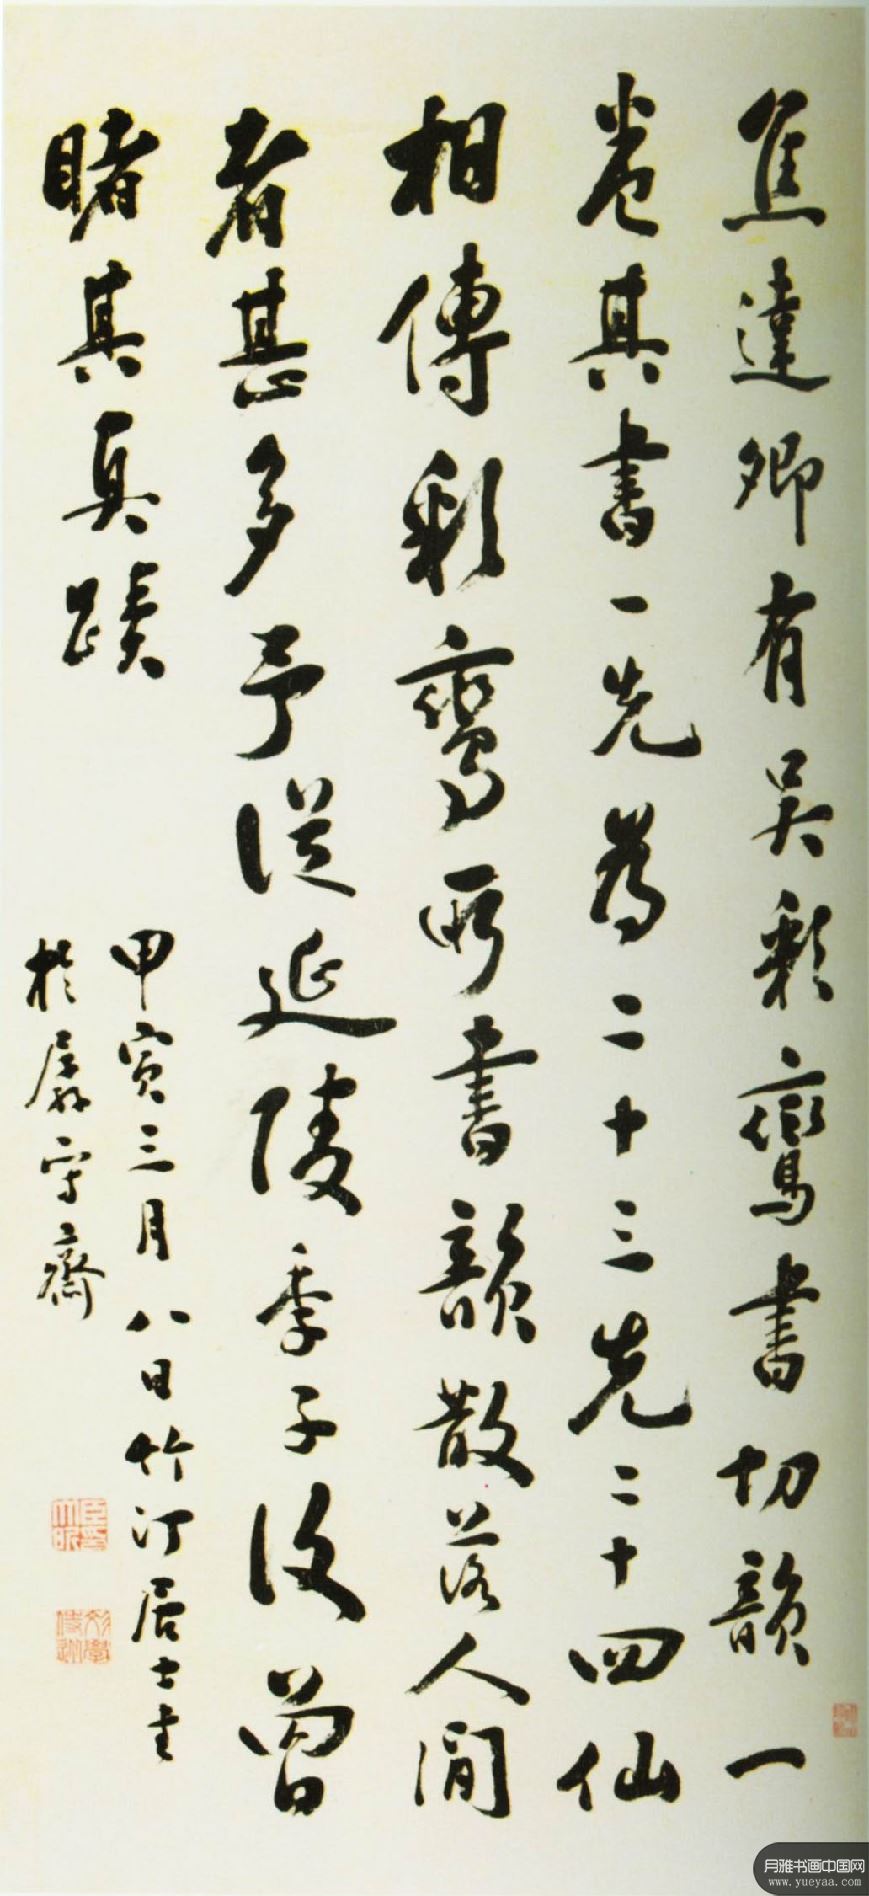 焦達卿有吳彩鸞書切韻一
卷其書一先為二十三先二十四仙
相傳彩鸞所書韻散落人間
者甚多予從延陵季子後曾
睹其真蹟
甲寅三月八日竹汀居士書
於孱守齋
月雅书画中国网
www.yueyaa.com